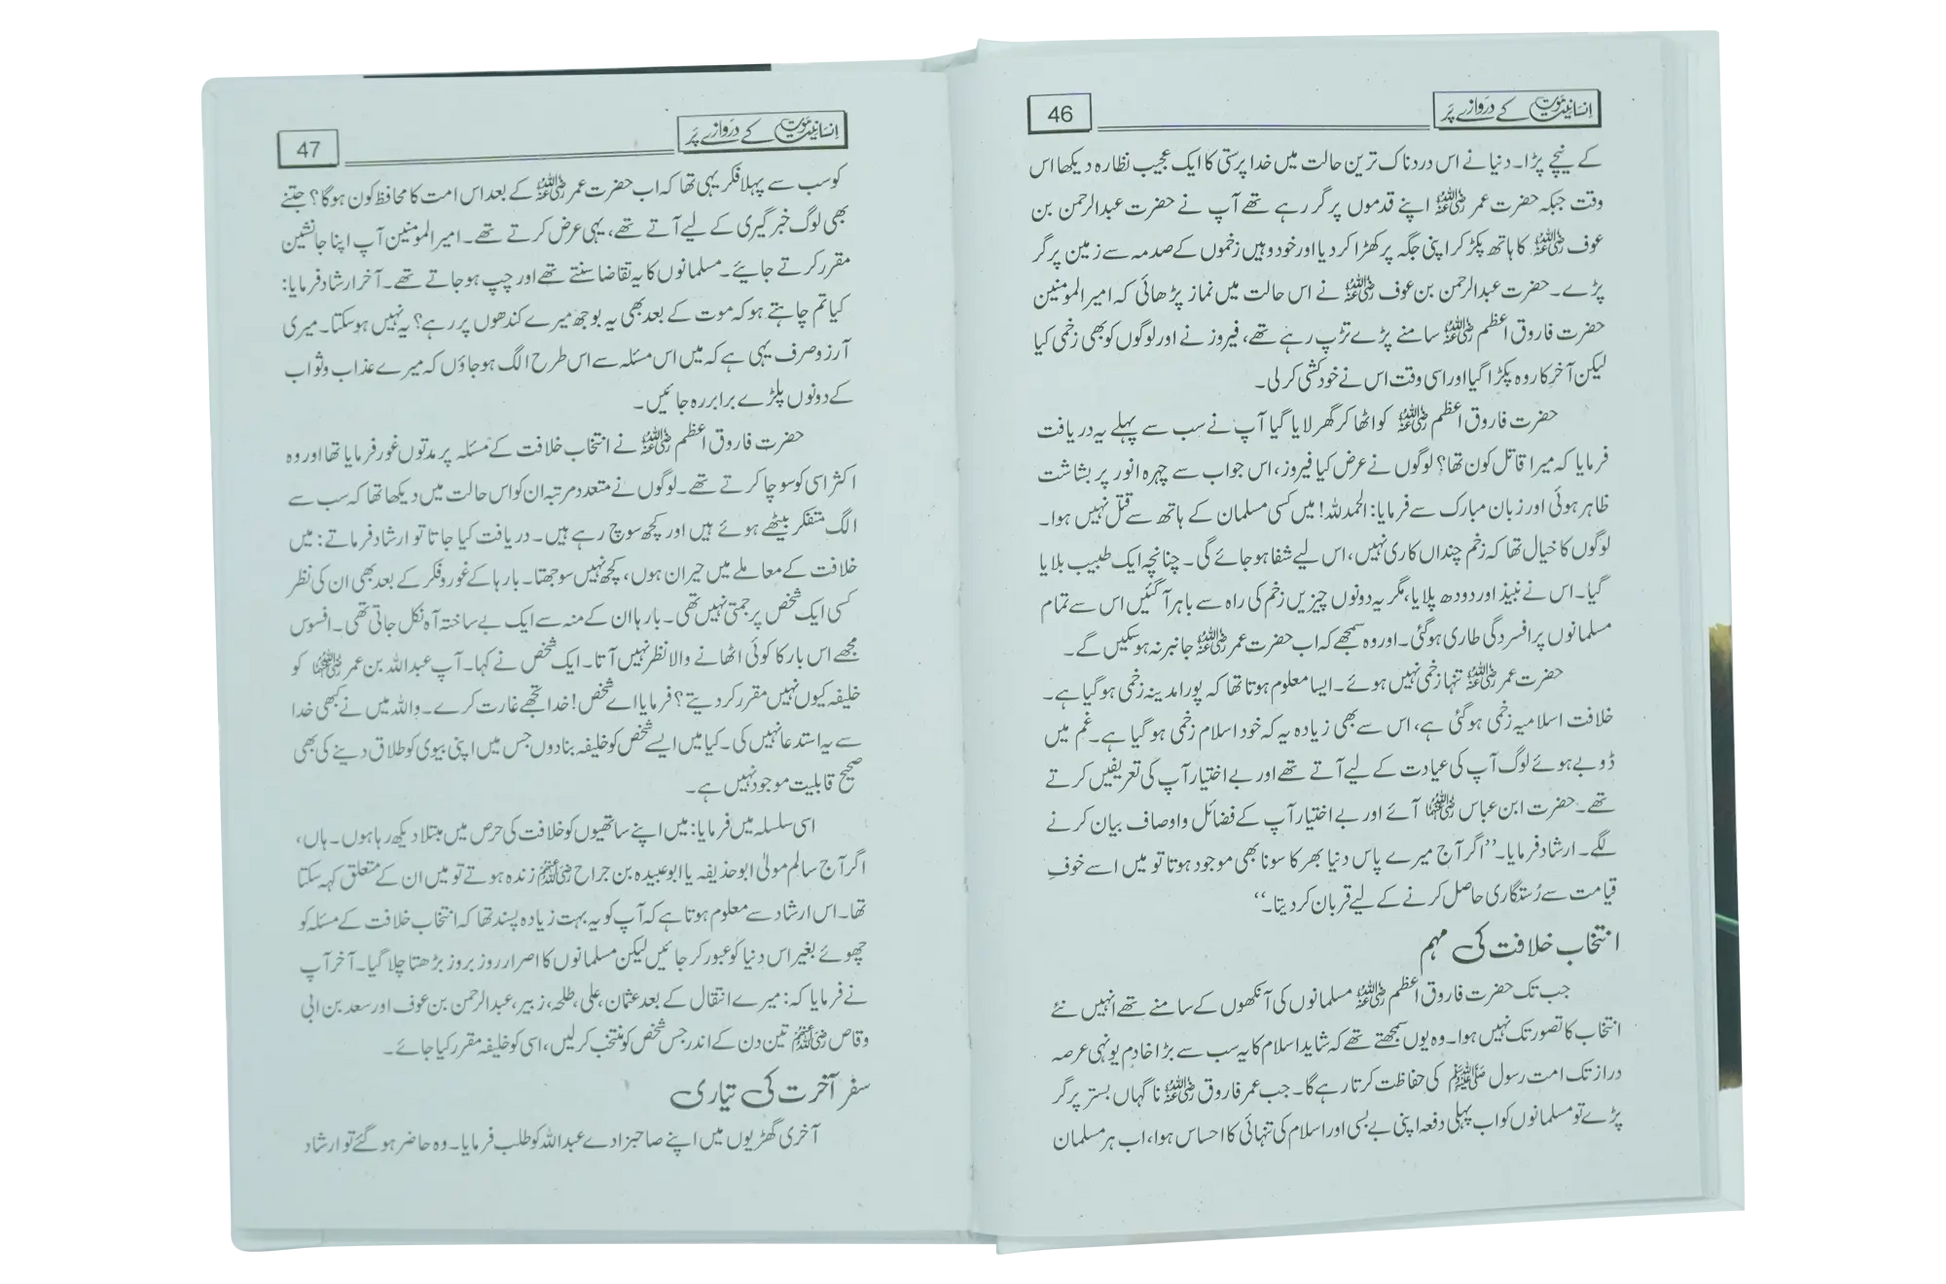 انسانیت موت کے دروازے پر
46
کے نیچے پڑا۔ دنیا نے اس دردناک ترین حالت میں خدا پرستی کا ایک عجیب نظارہ دیکھا اس
وقت جبکہ حضرت عمر رضی اللہ عنہ اپنے قدموں پر گر رہے تھے آپ نے حضرت عبدالرحمن بن
عوف رضی اللہ عنہ کا ہاتھ پکڑ کر اپنی جگہ پر کھڑا کر دیا اور خود وہیں زخموں کے صدمہ سے زمین پر گر
پڑے۔ حضرت عبدالرحمن بن عوف رضی اللہ عنہ نے اس حالت میں نماز پڑھائی کہ امیر المومنین
حضرت فاروق اعظم رضی اللہ عنہ سامنے پڑے تڑپ رہے تھے، فیروز نے اور لوگوں کو بھی زخمی کیا
لیکن آخر کار وہ پکڑا گیا اور اسی وقت اس نے خود کشی کر لی۔
حضرت فاروق اعظم رضی اللہ عنہ کو اٹھا کر گھر لایا گیا آپ نے سب سے پہلے یہ دریافت
فرمایا کہ میرا قاتل کون تھا؟ لوگوں نے عرض کیا فیروز، اس جواب سے چہرہ انور پر بشاشت
ظاہر ہوئی اور زبان مبارک سے فرمایا: الحمدللہ! میں کسی مسلمان کے ہاتھ سے قتل نہیں ہوا۔
لوگوں کا خیال تھا کہ زخم چنداں کاری نہیں، اس لیے شفا ہو جائے گی۔ چنانچہ ایک طبیب بلایا
گیا۔ اس نے نبیذ اور دودھ پلایا، مگر یہ دونوں چیزیں زخم کی راہ سے باہر آ گئیں اس سے تمام
مسلمانوں پر افسردگی طاری ہو گئی۔ اور وہ سمجھے کہ اب حضرت عمر رضی اللہ عنہ جانبر نہ ہو سکیں گے۔
حضرت عمر رضی اللہ عنہ تنہا زخمی نہیں ہوئے۔ ایسا معلوم ہوتا تھا کہ پورا مدینہ زخمی ہو گیا ہے۔
خلافت اسلامیہ زخمی ہو گئی ہے، اس سے بھی زیادہ یہ کہ خود اسلام زخمی ہو گیا ہے۔ غم میں
ڈوبے ہوئے لوگ آپ کی عیادت کے لیے آتے تھے اور بے اختیار آپ کی تعریفیں کرتے
تھے۔ حضرت ابن عباس رضی اللہ عنہما آئے اور بے اختیار آپ کے فضائل و اوصاف بیان کرنے
لگے۔ ارشاد فرمایا۔ ’’اگر آج میرے پاس دنیا بھر کا سونا بھی موجود ہوتا تو میں اسے خوفِ
قیامت سے رُستگاری حاصل کرنے کے لیے قربان کر دیتا۔‘‘
انتخاب خلافت کی مہم
جب تک حضرت فاروق اعظم رضی اللہ عنہ مسلمانوں کی آنکھوں کے سامنے تھے انہیں نئے
انتخاب کا تصور تک نہیں ہوا۔ وہ یوں سمجھتے تھے کہ شاید اسلام کا یہ سب سے بڑا خادم یونہی عرصہ
دراز تک امت رسول صلی اللہ علیہ وسلم کی حفاظت کرتا رہے گا۔ جب عمر فاروق رضی اللہ عنہ نا گہاں بستر پر گر
پڑے تو مسلمانوں کو اب پہلی دفعہ اپنی بے بسی اور اسلام کی تنہائی کا احساس ہوا، اب ہر مسلمان
انسانیت موت کے دروازے پر
47
کو سب سے پہلا فکر یہی تھا کہ اب حضرت عمر رضی اللہ عنہ کے بعد اس امت کا محافظ کون ہو گا؟ جتنے
بھی لوگ خبر گیری کے لیے آتے تھے، یہی عرض کرتے تھے۔ امیر المومنین آپ اپنا جانشین
مقرر کرتے جایئے۔ مسلمانوں کا یہ تقاضا سنتے تھے اور چپ ہو جاتے تھے۔ آخر ارشاد فرمایا:
کیا تم چاہتے ہو کہ موت کے بعد بھی یہ بوجھ میرے کندھوں پر رہے؟ یہ نہیں ہو سکتا۔ میری
آرزو صرف یہی ہے کہ میں اس مسئلہ سے اس طرح الگ ہو جاؤں کہ میرے عذاب و ثواب
کے دونوں پلڑے برابر رہ جائیں۔
حضرت فاروق اعظم رضی اللہ عنہ نے انتخاب خلافت کے مسئلہ پر مدتوں غور فرمایا تھا اور وہ
اکثر اسی کو سوچا کرتے تھے۔ لوگوں نے متعدد مرتبہ ان کو اس حالت میں دیکھا تھا کہ سب سے
الگ متفکر بیٹھے ہوئے ہیں اور کچھ سوچ رہے ہیں۔ دریافت کیا جاتا تو ارشاد فرماتے: میں
خلافت کے معاملے میں حیران ہوں، کچھ نہیں سوجھتا۔ بارہا کے غور و فکر کے بعد بھی ان کی نظر
کسی ایک شخص پر جمتی نہیں تھی۔ بارہا ان کے منہ سے ایک بے ساختہ آہ نکل جاتی تھی۔ افسوس
مجھے اس بار کا کوئی اٹھانے والا نظر نہیں آتا۔ ایک شخص نے کہا۔ آپ عبداللہ بن عمر رضی اللہ عنہما کو
خلیفہ کیوں نہیں مقرر کر دیتے؟ فرمایا اے شخص! خدا تجھے غارت کرے۔ واللہ میں نے کبھی خدا
سے یہ استدعا نہیں کی۔ کیا میں ایسے شخص کو خلیفہ بنا دوں جس میں اپنی بیوی کو طلاق دینے کی بھی
صحیح قابلیت موجود نہیں ہے۔
اسی سلسلہ میں فرمایا: میں اپنے ساتھیوں کو خلافت کی حرص میں مبتلا دیکھ رہا ہوں۔ ہاں،
اگر آج سالم مولیٰ ابو حذیفہ یا ابو عبیدہ بن جراح رضی اللہ عنہم زندہ ہوتے تو میں ان کے متعلق کہہ سکتا
تھا۔ اس ارشاد سے معلوم ہوتا ہے کہ آپ کو یہ بہت زیادہ پسند تھا کہ انتخاب خلافت کے مسئلہ کو
چھوئے بغیر اس دنیا کو عبور کر جائیں لیکن مسلمانوں کا اصرار روز بروز بڑھتا چلا گیا۔ آخر آپ
نے فرمایا کہ: میرے انتقال کے بعد عثمان، علی، طلحہ، زبیر، عبدالرحمن بن عوف اور سعد بن ابی
وقاص رضی اللہ عنہم تین دن کے اندر جس شخص کو منتخب کر لیں، اسی کو خلیفہ مقرر کیا جائے۔
سفر آخرت کی تیاری
آخری گھڑیوں میں اپنے صاحبزادے عبداللہ کو طلب فرمایا۔ وہ حاضر ہو گئے تو ارشاد